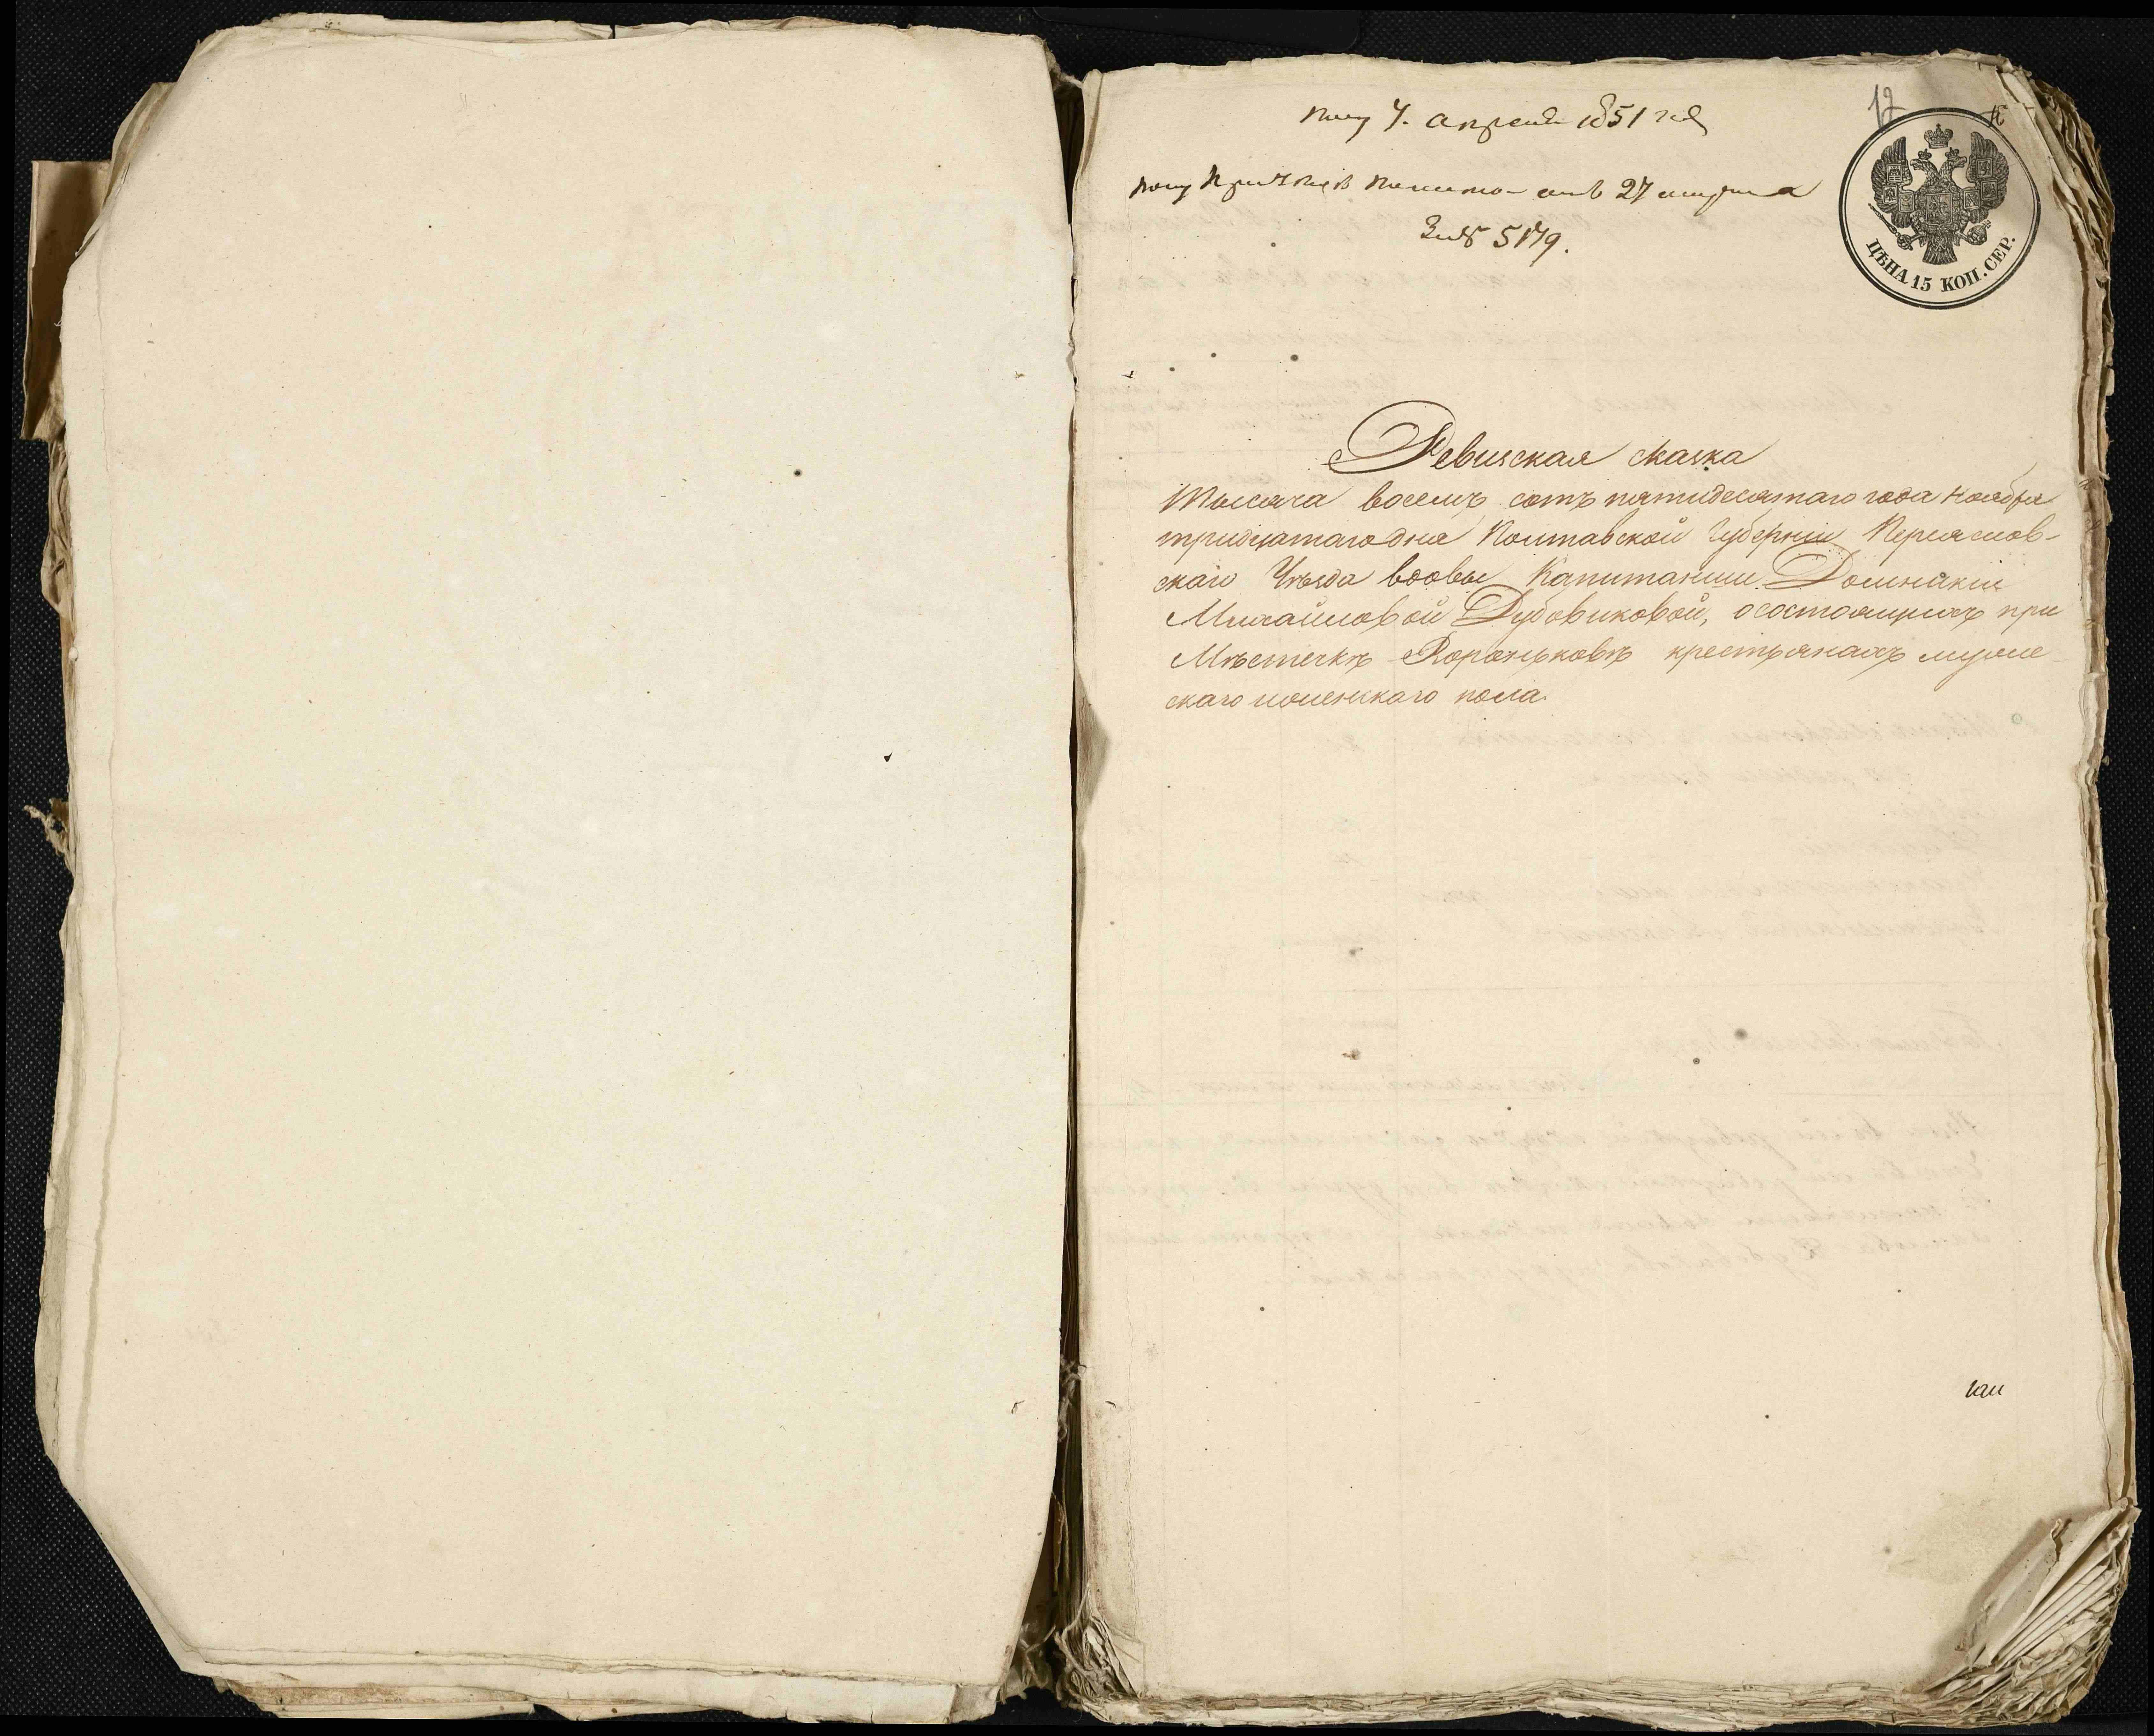 12
Полу 4. апреля 1851 года
27
За № 5179.
ЦѢНА 15 КОП. СЕР.
Ревизская сказка
Тысяча восемь сотъ пятидесятаго года Ноября
тридцатаго дня Полтавской Губерніи Переяслов-
скаго Уѣзда вдовы Капитанши Домникіи
Михайловой Дубовиковой, о состоящихъ при
Мѣстечкѣ Воронъковѣ крестьянахъ муже-
скаго и женскаго пола.